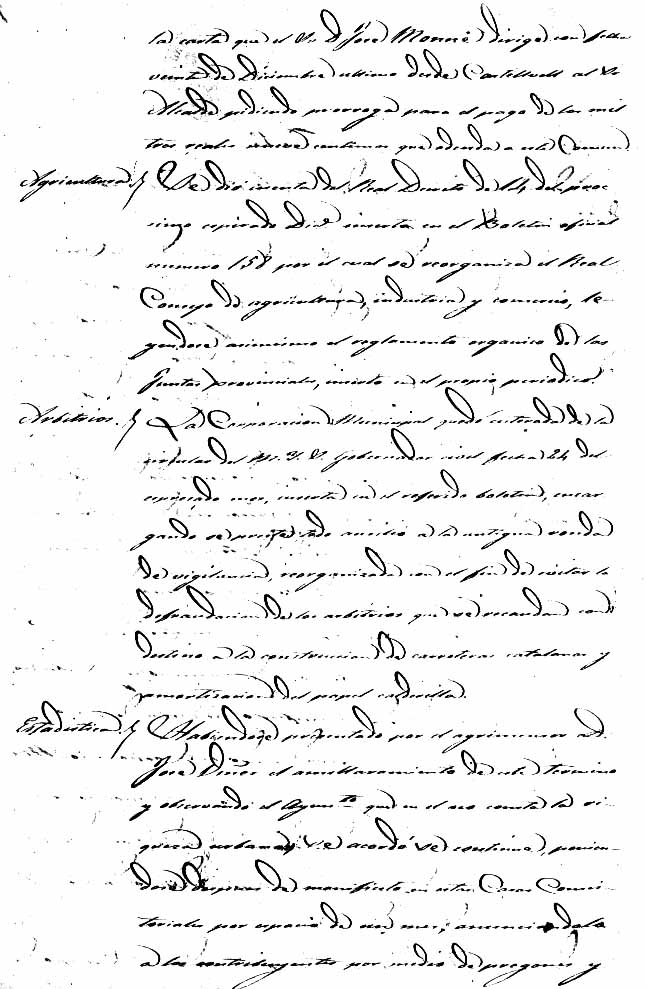 la carta que el Sr. D. José Monné dirige con fecha
veinte de Diciembre ultimo desde Castellvell al Sr.
Alcalde pidiendo prorroga para el pago de los mil
tres reales centimos que adeuda a este Comun
Agricultura Se dió cuenta del Real Decreto de 14 del proc-
simo espirado Dice inserto en el Boletin oficial
numero 158 por el cual se reorganiza el Real
Consejo de agricultura, industria y comercio, le-
yendose asimismo el reglamento organico de las
Juntas provinciales, inserto en el propio periodico.
Arbitrios La Corporacion Municipal quedó enterada de la
circular del M. I. S. Gobernador civil fecha 24 del
espresado mes, inserta en el referido boletin, encar
gando se preste todo ausilio a la antigua ronda
de vigilancia, reorganizada con el fin de evitar la
defraudacion de los arbitrios que se recaudan con
destino a la construccion de carreteras catalanas y
amortizacion del papel calderilla.
Estadistica Habiendose presentado por el agrimensor D.
José el amillaramiento de este termino
y observando el Ayuntto que en el no consta la ri-
queza urbana, se acordó se continue, ponien-
dose despues de manifiesto en estas Casas Consis-
toriales por espacio de un mes, anunciandolo
a los contribuyentes por medio de pregones y